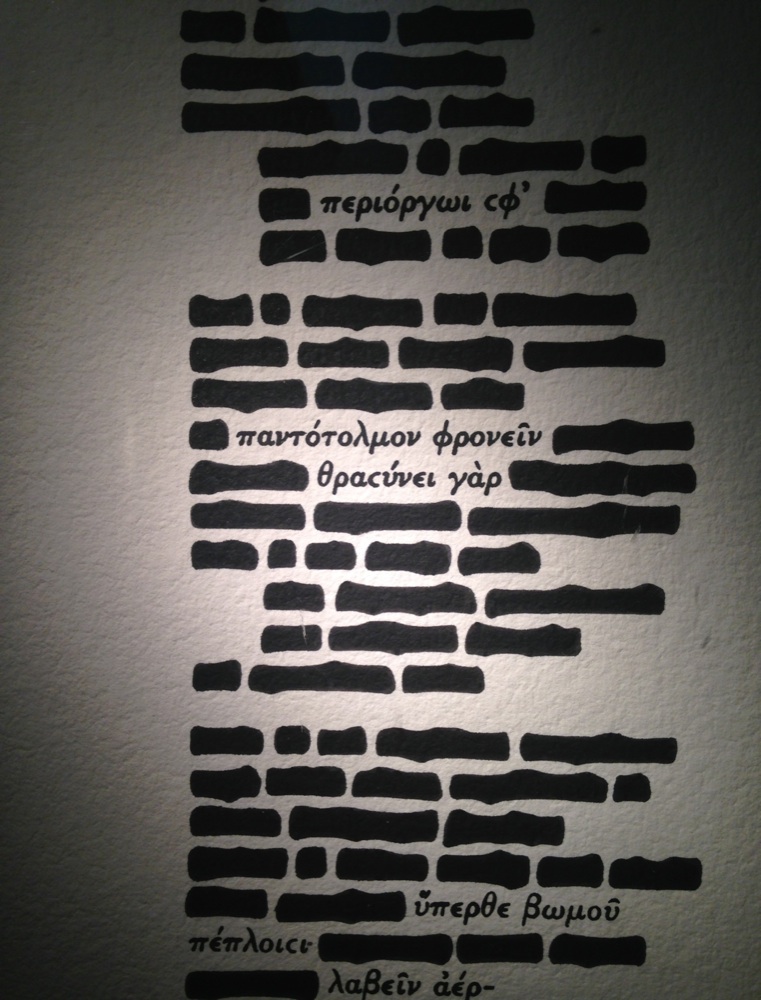 περιόργωι cφ’
παντότολμον φρονεῖν
θραcύνει γὰρ
ὕπερθε βωμοῦ
πέπλοιcι
λαβεῖν ἀέρ-